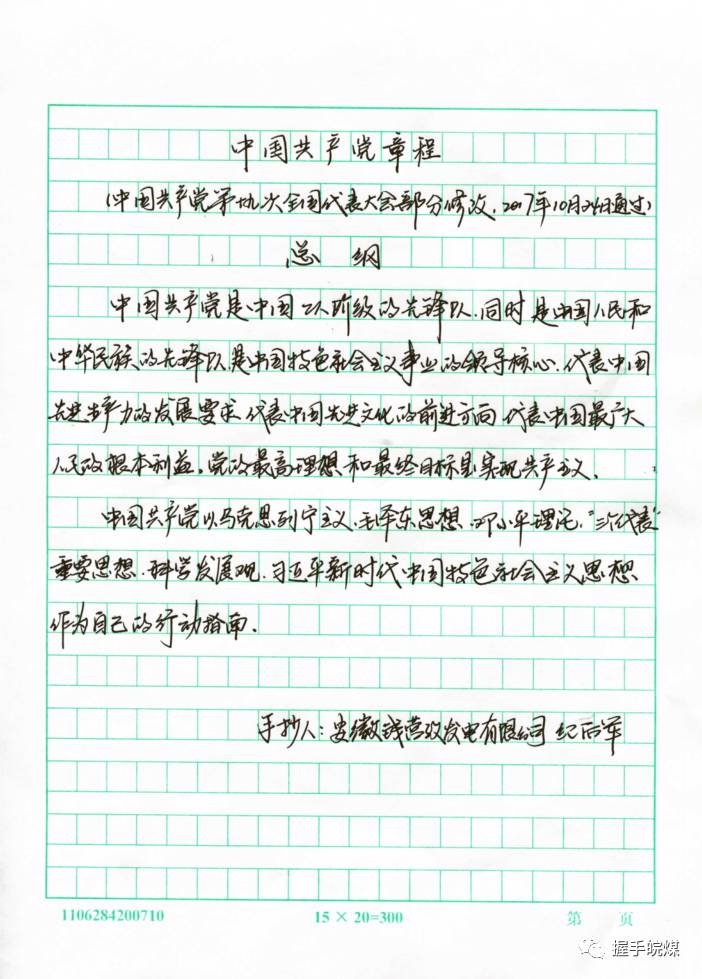 中国共产党章程
(中国共产党第十九次全国代表大会部分修改,2017年10月24日通过)
总 纲
中国共产党是中国工人阶级的先锋队,同时是中国人民和
中华民族的先锋队,是中国特色社会主义事业的领导核心,代表中国
先进生产力的发展要求,代表中国先进文化的前进方向,代表中国最广大
人民的根本利益。党的最高理想和最终目标是实现共产主义。
中国共产党以马克思列宁主义、毛泽东思想、邓小平理论、“三个代表”
重要思想、科学发展观、习近平新时代中国特色社会主义思想
作为自己的行动指南。
手抄人:安徽钱营孜发电有限公司 纪后军
1106284200710
15 × 20=300
第 页
握手皖煤